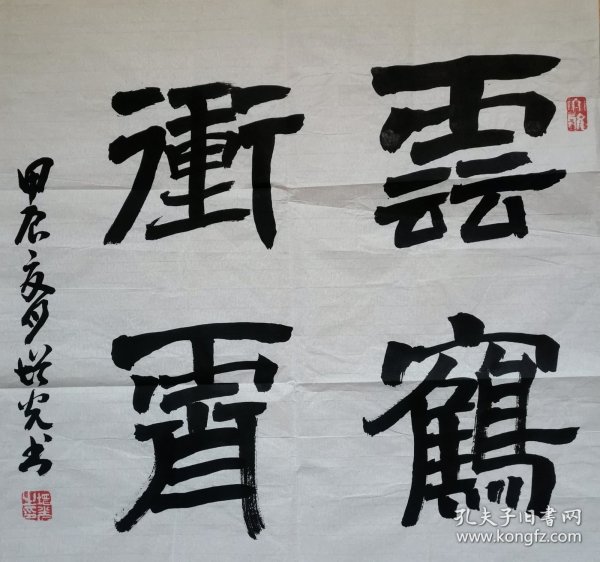 雲鶴
衝霄
甲辰夏月增光书
孔夫子旧書网
www.kongfz.com